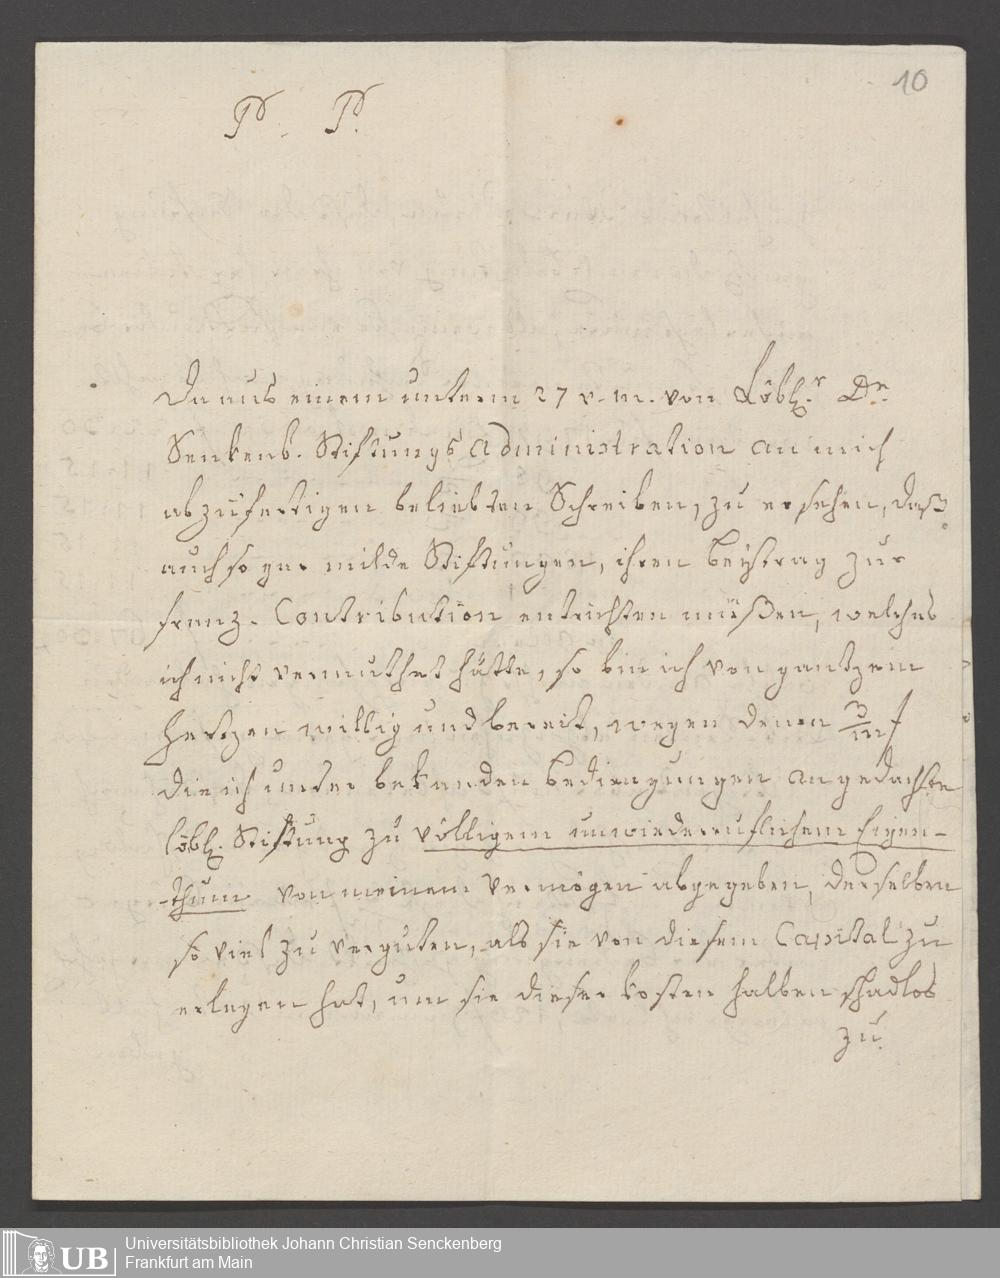 10
P. P.
Da aus einem unterm 27 v. m. von Löbl.r Dr.
Senkenb. Stiftungs Administration an mich
abzufertigen beliebten Schreiben, zu ersehen, daß
auch so gar milde Stiftungen, ihren beÿtrag zur
franz. Contribution entrichten müßen, welches
ich nicht vermuthet hätte, so bin ich von gantzem
Hertzen willig und bereit, wegen denen 3/m f
die ich unter bekanden bedingungen an gedachte
löbl. Stiftung zu völligem unwiederruflichem Eigen-
-thum von meinem Vermögen abgegeben, derselben
so viel zu verguten, als sie von diesem Capital zu
erlegen hat, um sie dieser kosten halben schadlos
zu
UB
Universitätsbibliothek Johann Christian Senckenberg
Frankfurt am Main